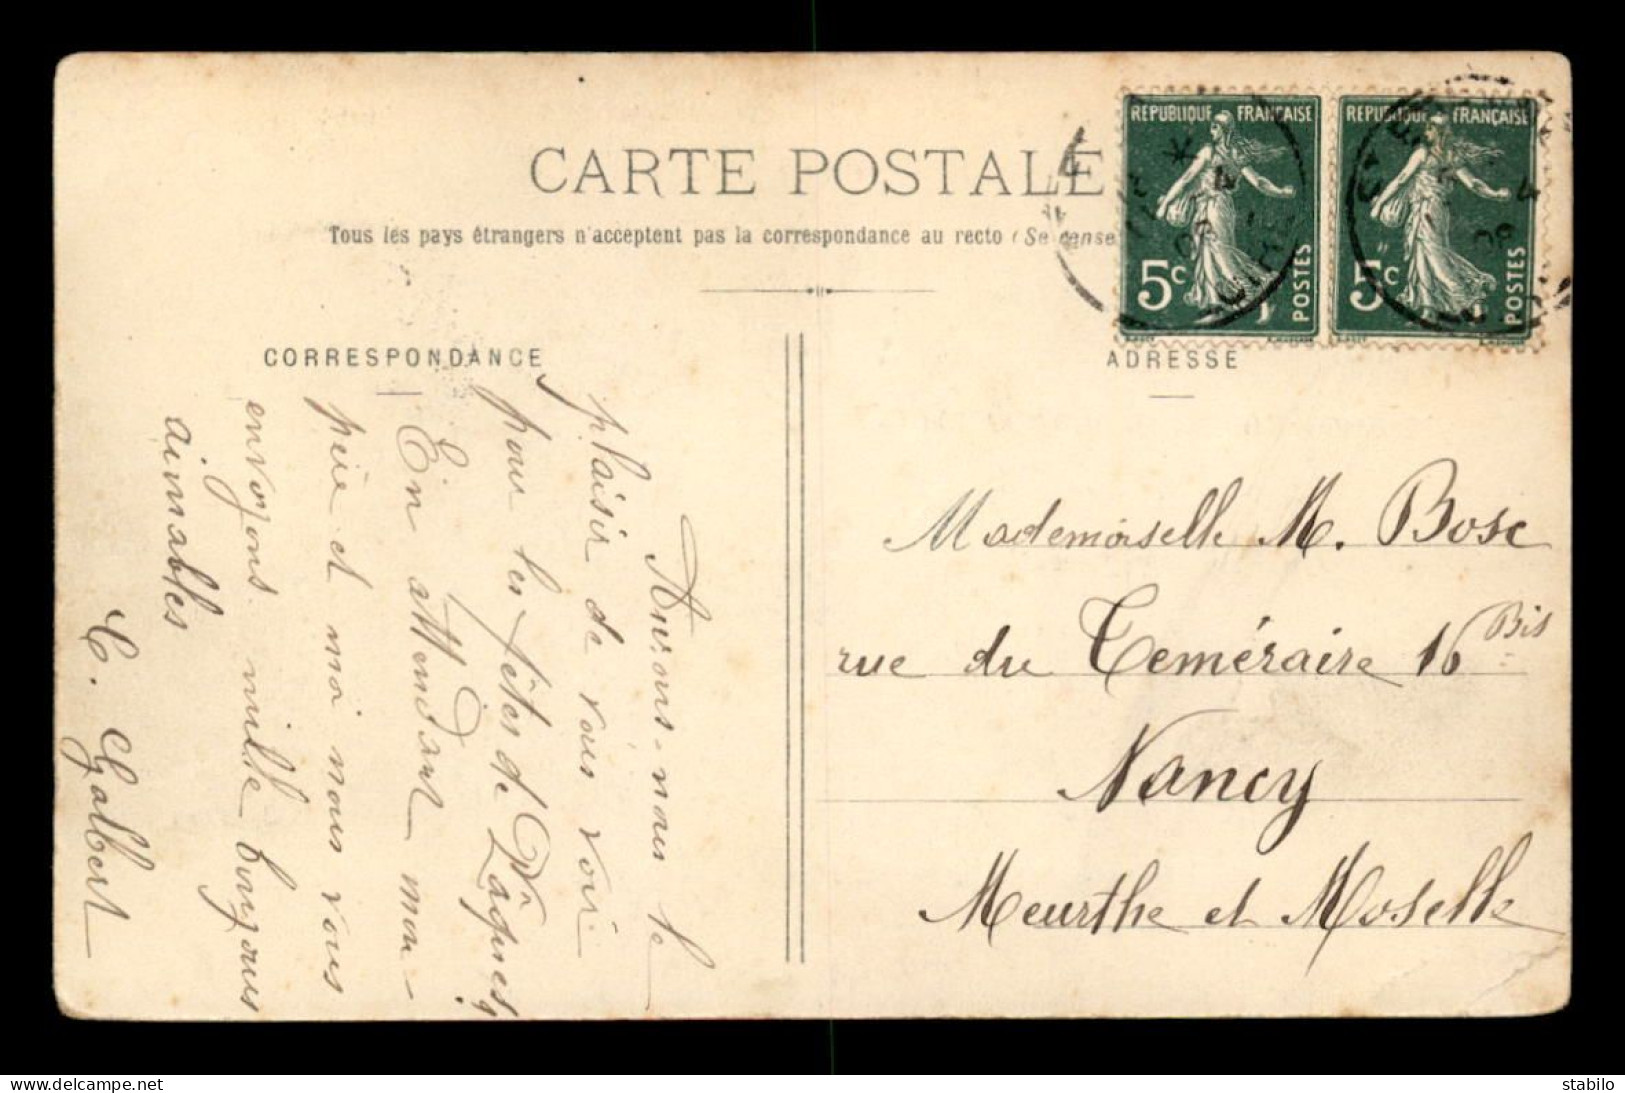 CARTE POSTALE
Tous les pays étrangers n'acceptent pas la correspondance au recto (Se rense
CORRESPONDANCE
ADRESSE
RÉPUBLIQUE FRANÇAISE
5c
POSTES
RÉPUBLIQUE FRANÇAISE
5c
POSTES
Aurons-nous le
plaisir de vous voir
pour les fêtes de Pâques?
En attendant mon
père et moi nous vous
envoyons mille bonjours
aimables
C. Galbert
Mademoiselle M. Bosc
rue du Teméraire 16 Bis
Nancy
Meurthe et Moselle
www.delcampe.net
stabilo